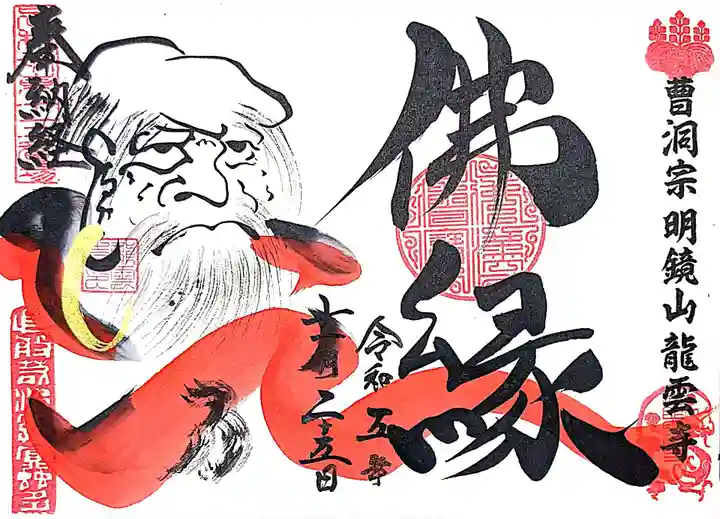 曹洞宗 明鏡山 龍雲寺
佛縁
令和五年
十一月二十五日
奉納経